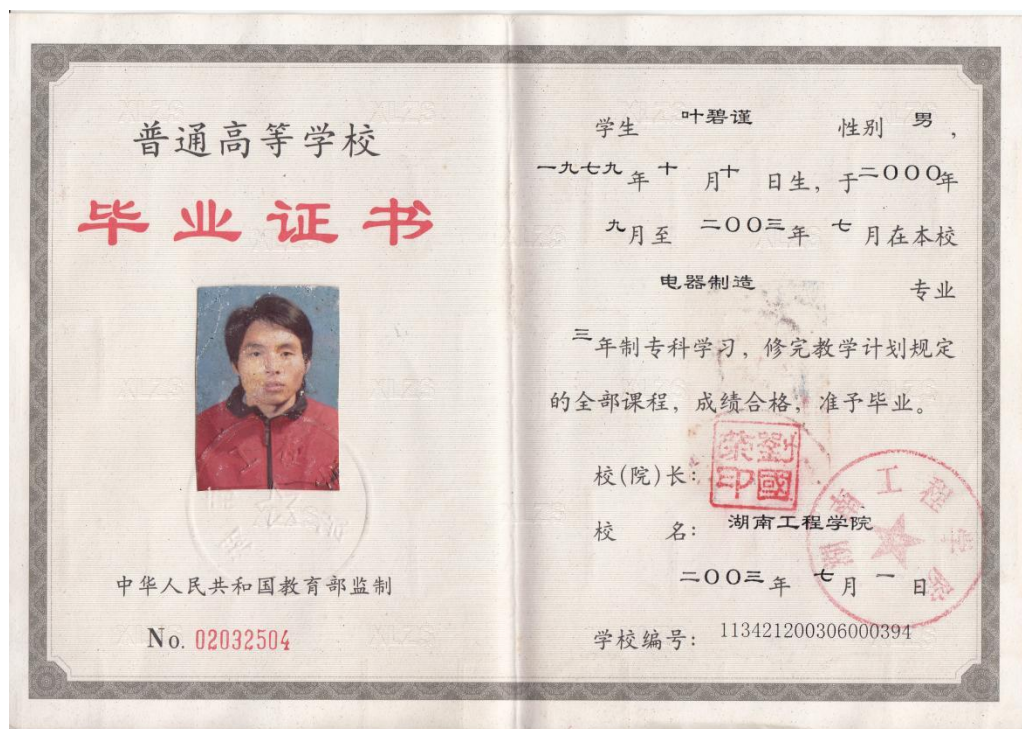 普通高等学校
毕业证书
中华人民共和国教育部监制
No. 02032504
学生 叶碧谨 性别 男，
一九七九年十月十日生，于二〇〇〇年
九月至 二〇〇三年 七月在本校
电器制造 专业
三年制专科学习，修完教学计划规定
的全部课程，成绩合格，准予毕业。
校(院)长：
劉國
荣印
校 名：湖南工程学院
二〇〇三年 七月一日
学校编号：113421200306000394
湖南工程学院
XLZS